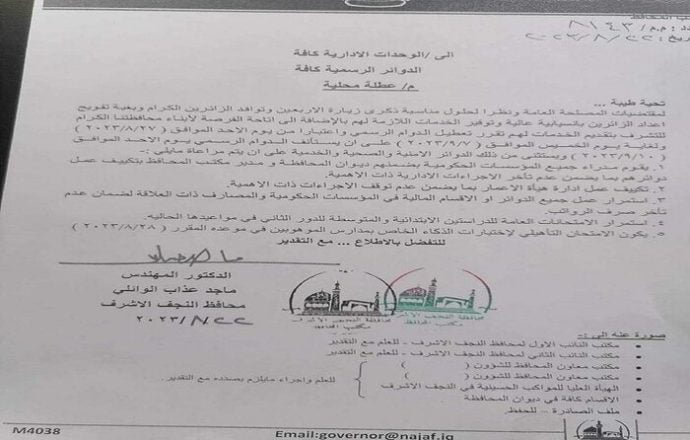 مكتب المحافظ
العدد: م.م/ ٨١٤٣
التاريخ: ٢٠٢٣/٨/٢٢
الى /الوحدات الادارية كافة
الدوائر الرسمية كافة
م/ عطلة محلية
تحية طيبة ...
لمقتضيات المصلحة العامة ونظرا لحلول مناسبة ذكرى زيارة الاربعين وتوافد الزائرين الكرام وبغية تفويج
اعداد الزائرين بانسيابية عالية وتوفير الخدمات اللازمة لهم بالإضافة الى اتاحة الفرصة لأبناء محافظتنا الكرام
للتشرف بتقديم الخدمات لهم تقرر تعطيل الدوام الرسمي واعتبارا من يوم الاحد الموافق ( ٢٠٢٣/٨/٢٧ )
ولغاية يوم الخميس الموافق ( ٢٠٢٣/٩/٧ ) على ان يستأنف الدوام الرسمي يوم الاحد الموافق
( ٢٠٢٣/٩/١٠ ) ويستثنى من ذلك الدوائر الامنية والصحية والخدمية على ان يتم مراعاة مايلي
١. يقوم مدراء جميع المؤسسات الحكومية بضمنهم ديوان المحافظة و مدير مكتب المحافظ بتكييف عمل
دوائرهم بما يضمن عدم تأخر الاجراءات الادارية ذات الاهمية.
٢. تكييف عمل ادارة هيأة الاعمار بما يضمن عدم توقف الاجراءات ذات الاهمية.
٣. استمرار عمل جميع الدوائر او الاقسام المالية في المؤسسات الحكومية والمصارف ذات العلاقة لضمان عدم
تأخر صرف الرواتب.
٤. استمرار الامتحانات العامة للدراستين الابتدائية والمتوسطة للدور الثاني في مواعيدها الحاليه.
٥. يكون الامتحان التأهيلي لإختبارات الذكاء الخاص بمدارس الموهوبين في موعده المقرر ( ٢٠٢٣/٨/٢٨ )
للتفضل بالاطلاع ... مع التقدير
الدكتور المهندس
ماجد عذاب الوائلي
محافظ النجف الاشرف
٢٠٢٣/٨/٢٢
محافظة النجف الاشرف
مكتب المحافظ
محافظة النجف الاشرف
مكتب المحافظ
صورة عنه الى :-
مكتب النائب الاول لمحافظ النجف الاشرف - للعلم مع التقدير
مكتب النائب الثاني لمحافظ النجف الاشرف - للعلم مع التقدير
مكتب معاون المحافظ للشؤون ( )
مكتب معاون المحافظ للشؤون ( )
الهيأة العليا للمواكب الحسينية في النجف الاشرف
للعلم واجراء مايلزم بصدده مع التقدير.
الاقسام كافة في ديوان المحافظة
ملف الصادرة – للحفظ.
M4038
Email:governor@najaf.iq